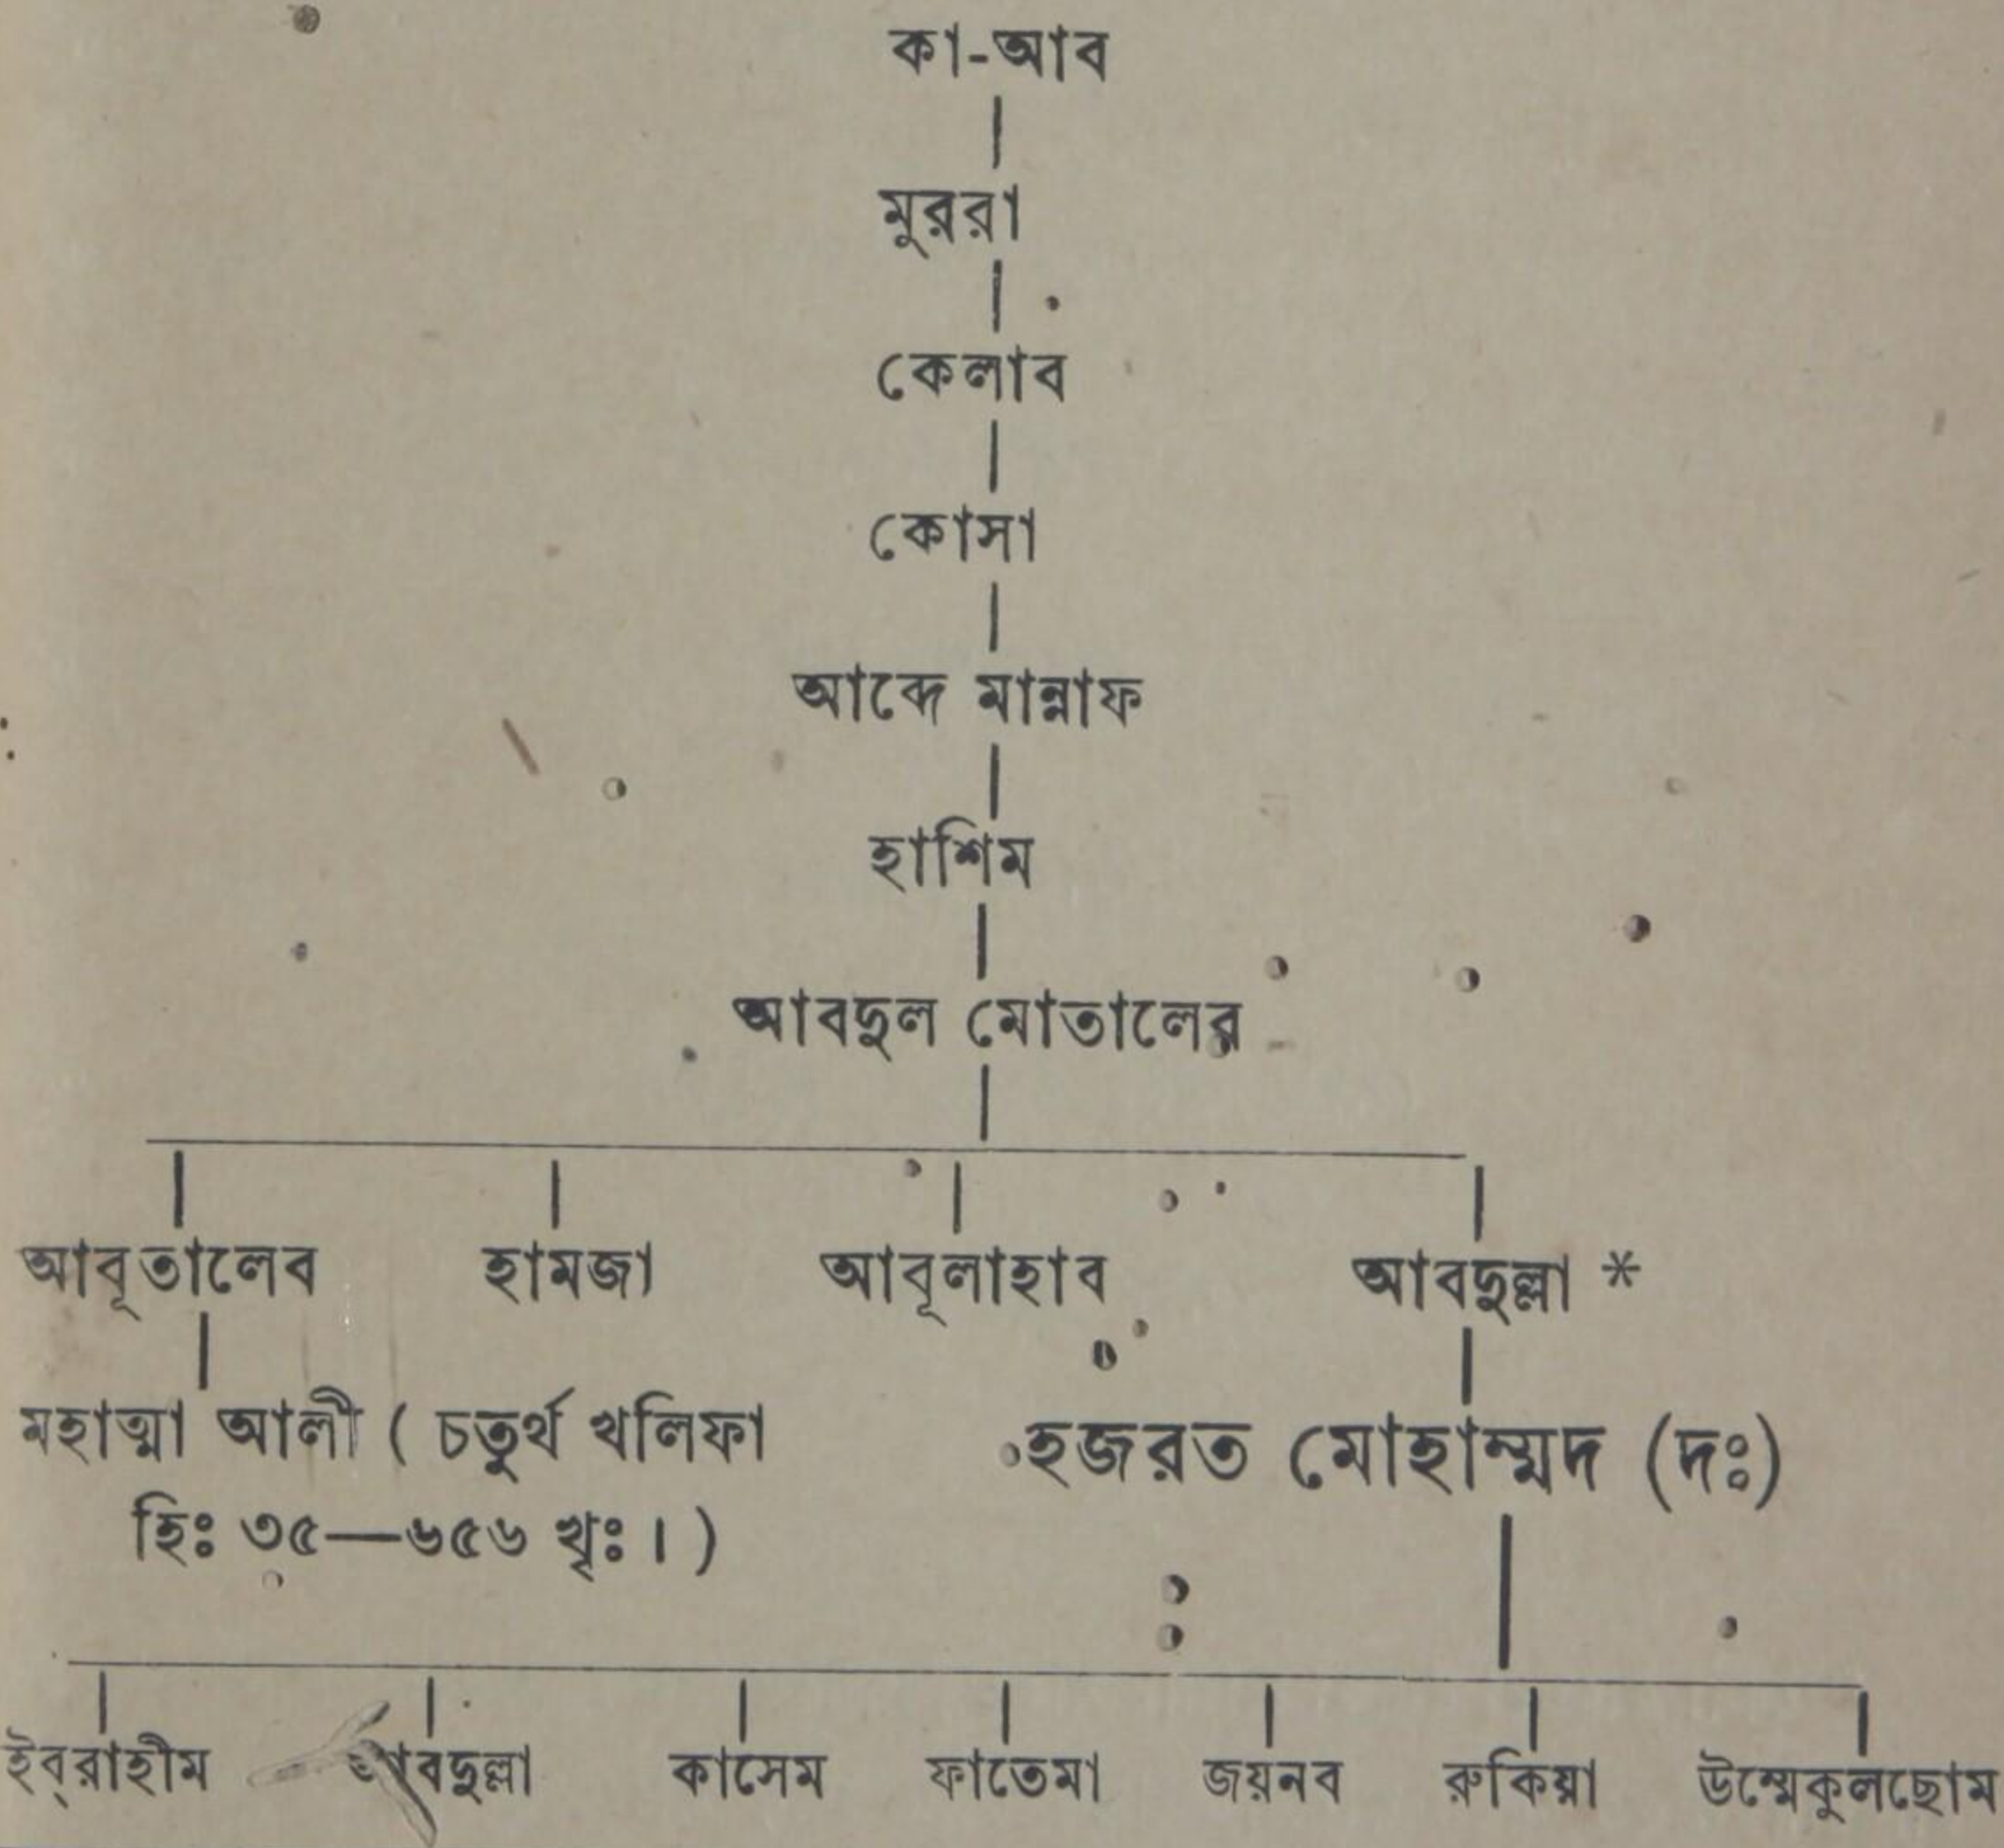 কা-আব
মুররা
কেলাব
কোসা
আব্দে মান্নাফ
হাশিম
আবদুল মোতালের
আবূতালেব হামজা আবূলাহাব আবদুল্লা *
মহাত্মা আলী ( চতুর্থ খলিফা হজরত মোহাম্মদ (দঃ)
হিঃ ৩৫—৬৫৬ খৃঃ। )
ইব্রাহীম আবদুল্লা কাসেম ফাতেমা জয়নব রুকিয়া উম্মেকুলছোম